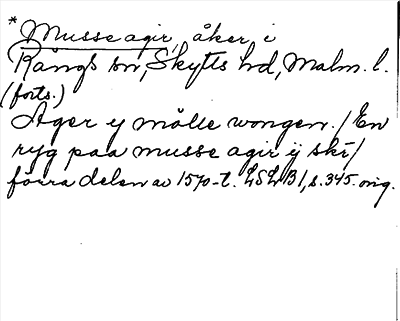 * Musse agir, åker i
Rängs sn, Skytts hd, Malm. l.
(forts.)
Ager ÿ mölle wongen. / En
ryg paa musse agir ÿ ski /
förra delen av 1570-t. LSLB1, s. 345. orig.